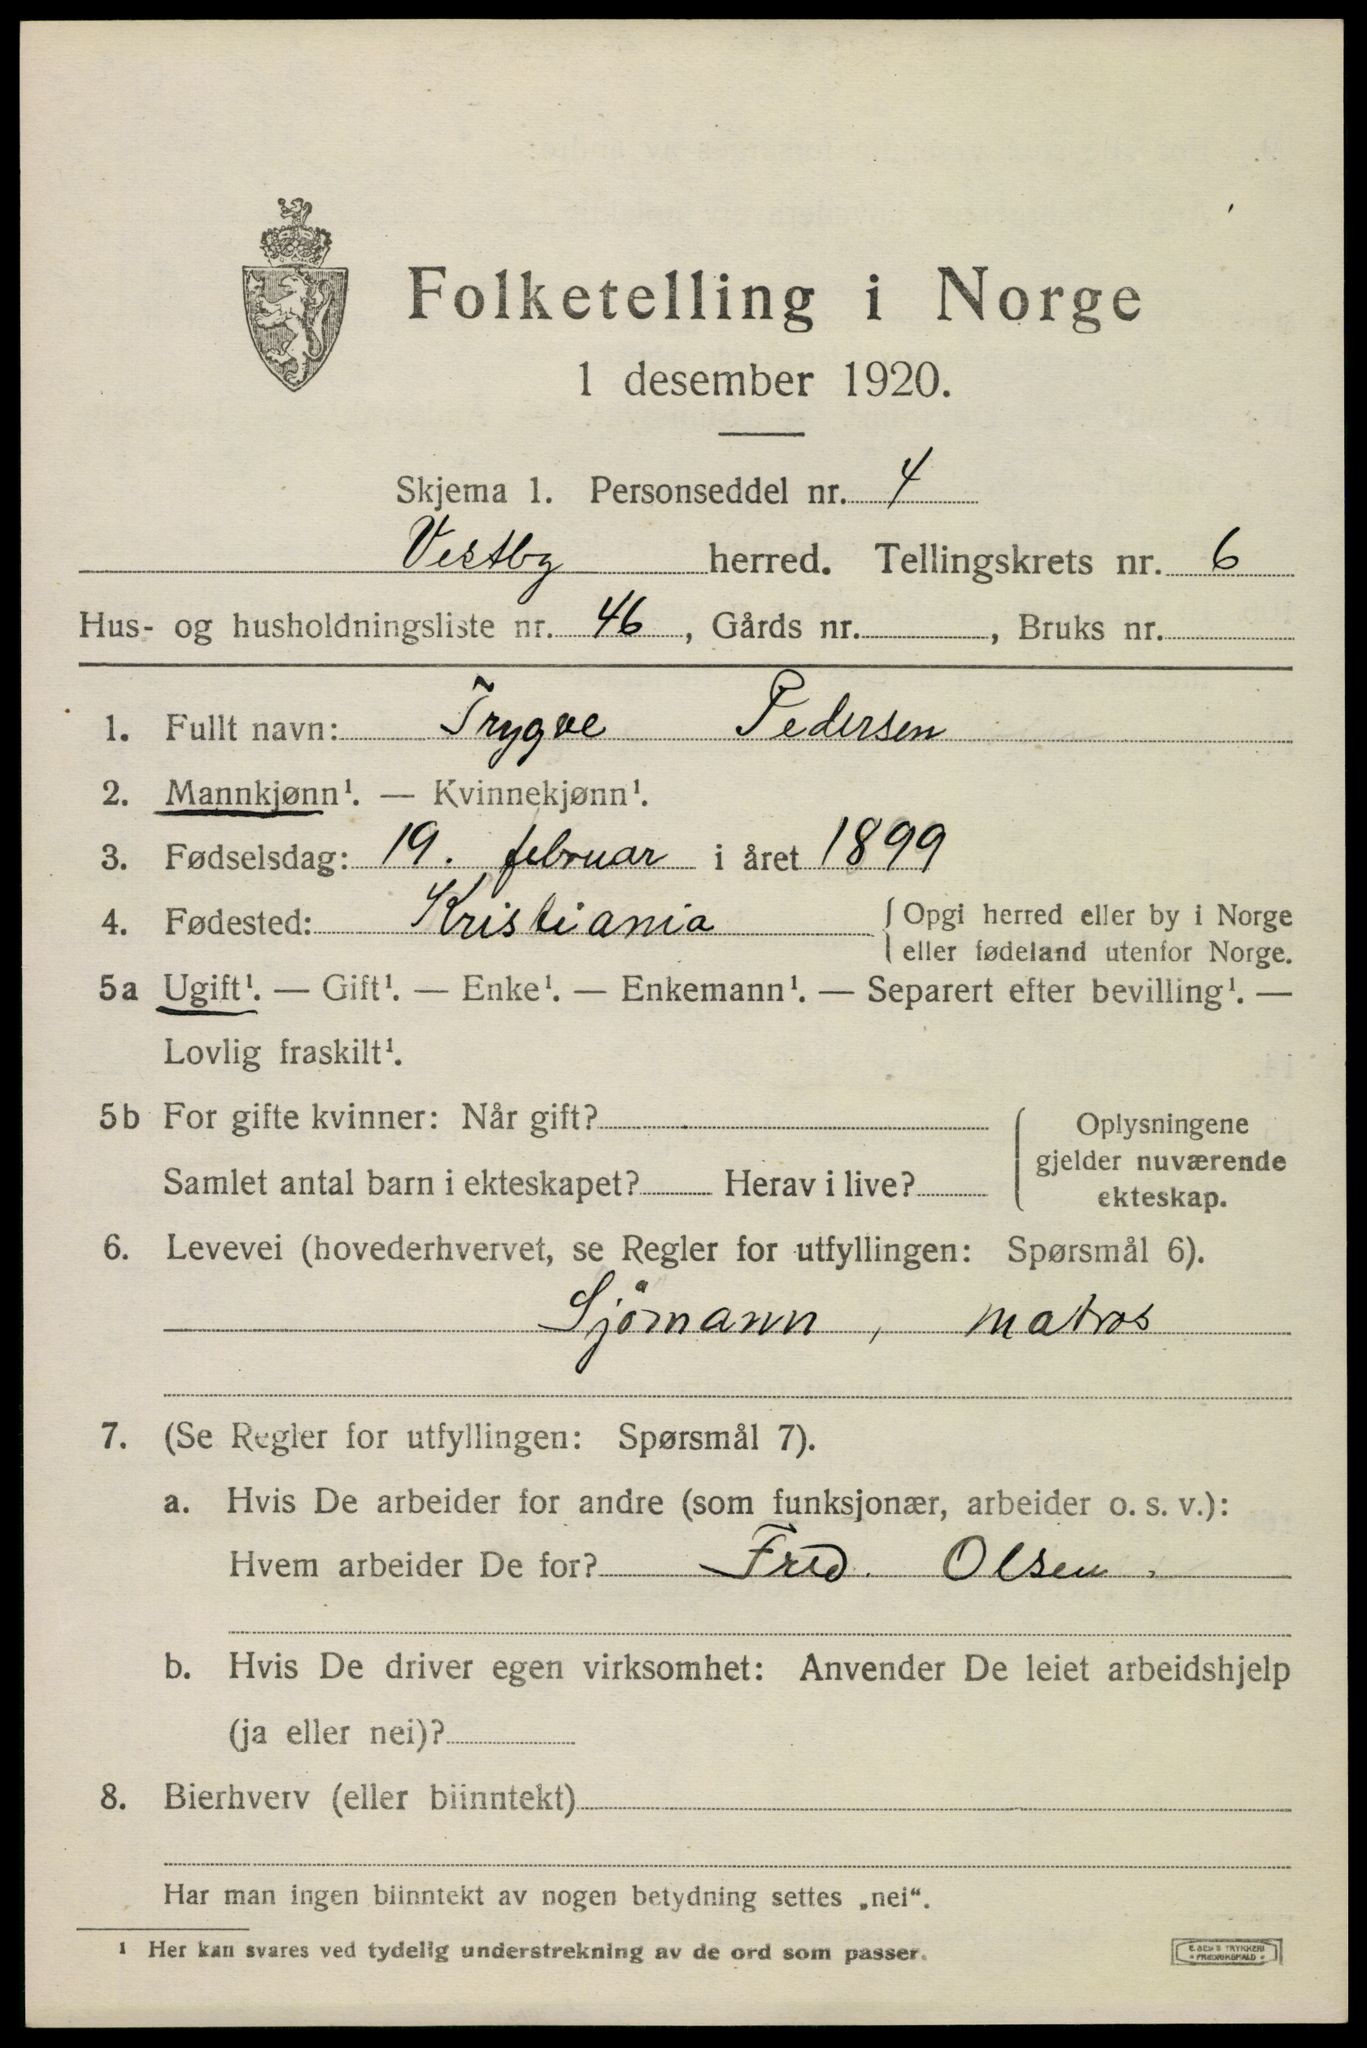 Folketelling i Norge
1 desember 1920.
Skjema 1. Personseddel nr. 4
Vestby herred. Tellingskrets nr. 6
Hus- og husholdningsliste nr. 46, Gårds nr. , Bruks nr.
1. Fullt navn: Trygve Pedersen
2. Mannkjønn¹. — Kvinnekjønn¹.
3. Fødselsdag: 19. februar i året 1899
4. Fødested: Kristiania { Opgi herred eller by i Norge
eller fødeland utenfor Norge.
5a Ugift¹. — Gift¹. — Enke¹. — Enkemann¹. — Separert efter bevilling¹. —
Lovlig fraskilt¹.
5b For gifte kvinner: Når gift? Oplysningene
gjelder nuværende
Samlet antal barn i ekteskapet? Herav i live? ekteskap.
6. Levevei (hovederhvervet, se Regler for utfyllingen: Spørsmål 6).
Sjömann, matros
7. (Se Regler for utfyllingen: Spørsmål 7).
a. Hvis De arbeider for andre (som funksjonær, arbeider o. s. v.):
Hvem arbeider De for? Fred. Olsen.
b. Hvis De driver egen virksomhet: Anvender De leiet arbeidshjelp
(ja eller nei)?
8. Bierhverv (eller biinntekt)
Har man ingen biinntekt av nogen betydning settes „nei“.
¹ Her kan svares ved tydelig understrekning av de ord som passer.
E. SEMS TRYKKERI
• FREDRIKSHALD •